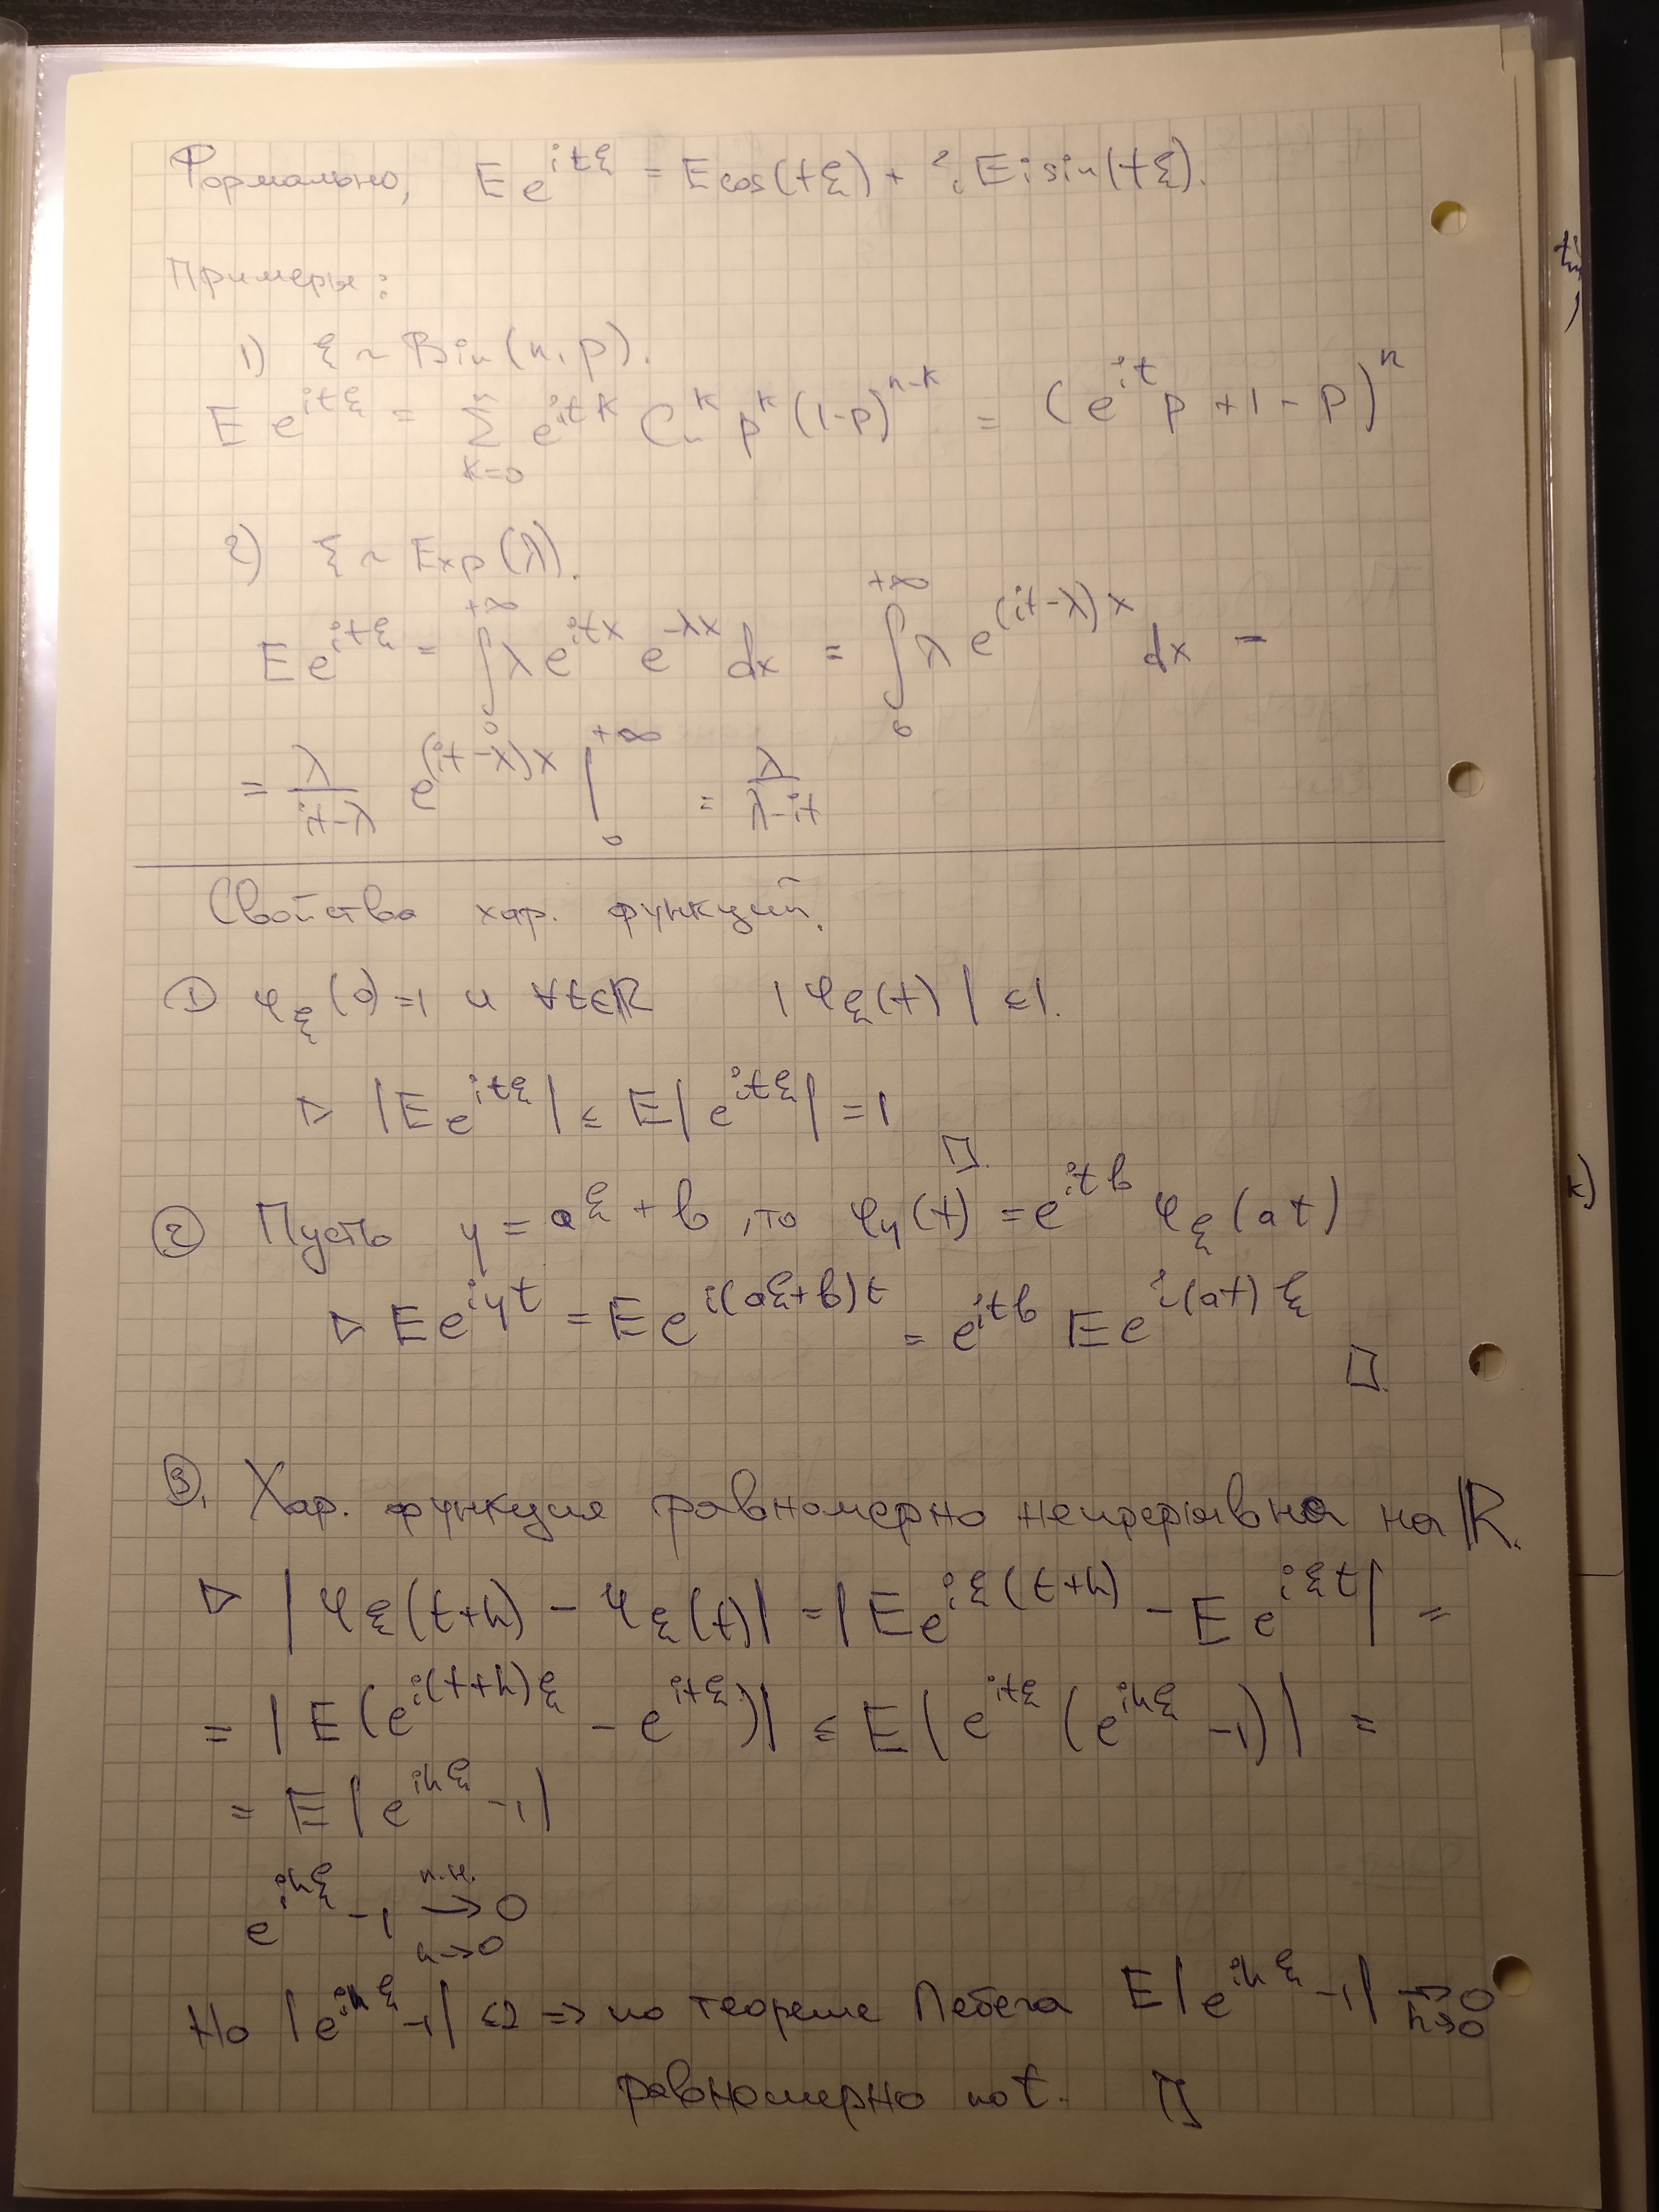 Формально, E e^{itξ} = E cos(tξ) + i E i sin(tξ).
Примеры:
1) ξ ~ Bin(n, p).
E e^{itξ} = ∑_{k=0}^{n} e^{itk} C_n^k p^k (1-p)^{n-k} = (e^{it} p + 1 - p)^n
2) ξ ~ Exp(λ).
E e^{itξ} = ∫_0^{+∞} λ e^{itx} e^{-λx} dx = ∫_0^{+∞} λ e^{(it-λ)x} dx =
= \frac{λ}{it-λ} e^{(it-λ)x} |_0^{+∞} = \frac{λ}{λ-it}
Свойства хар. функций.
① φ_ξ(0)=1 и ∀t∈ℝ |φ_ξ(t)| ≤1.
▷ |E e^{itξ}| ≤ E|e^{itξ}| = 1 □.
② Пусть η = aξ + b, то φ_η(t) = e^{itb} φ_ξ(at)
▷ E e^{iηt} = E e^{i(aξ+b)t} = e^{itb} E e^{i(at)ξ} □.
③. Хар. функция равномерно непрерывна на ℝ.
▷ |φ_ξ(t+h) - φ_ξ(t)| = |E e^{iξ(t+h)} - E e^{iξt}| =
= |E(e^{i(t+h)ξ} - e^{itξ})| ≤ E|e^{itξ}(e^{ihξ} - 1)| =
= E|e^{ihξ} - 1|
e^{ihξ} - 1 \xrightarrow[h→0]{п.н.} 0
Но |e^{ihξ} - 1| ≤2 => по теореме Лебега E|e^{ihξ} - 1| \xrightarrow[h→0]{} 0
равномерно по t. □